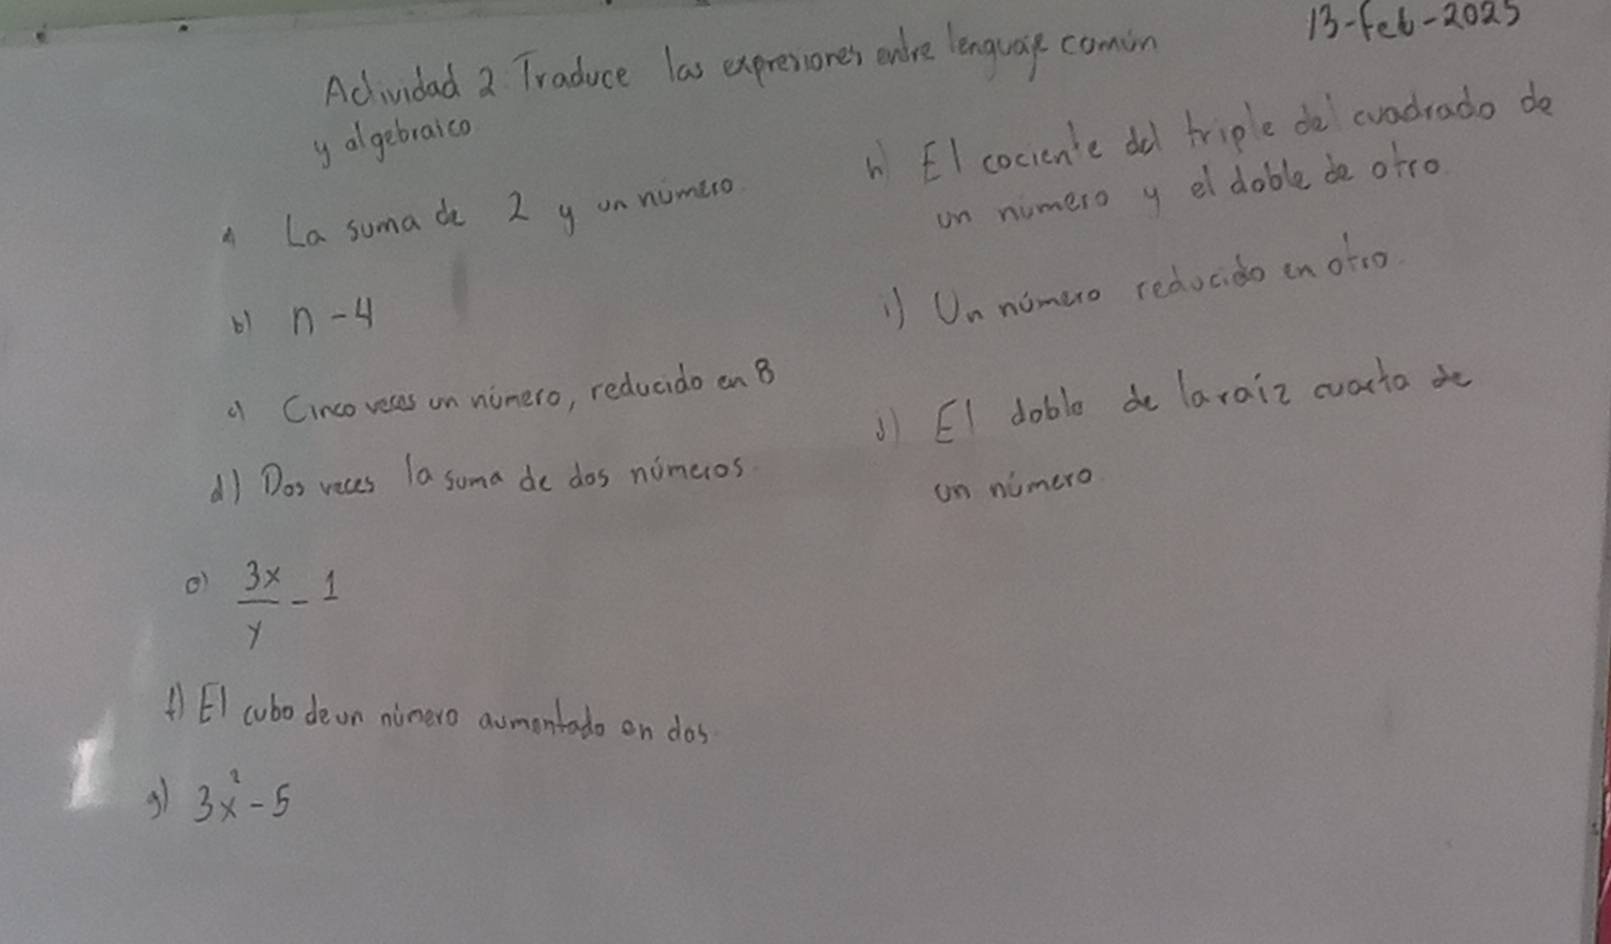 13-Feb-2025
Actividad 2. Traduce las expresiones entre lenguaje común
y algebraico.
a La suma de 2 y un número.
b) n - 4
c) Cinco veces un número, reducido en 8
d) Dos veces la suma de dos números.
e) 3x/y - 1
f) El cubo de un número aumentado en dos.
g) 3x² - 5
h) El cociente del triple del cuadrado de
un número y el doble de otro.
i) Un número reducido en otro.
j) El doble de la raíz cuarta de
un número.